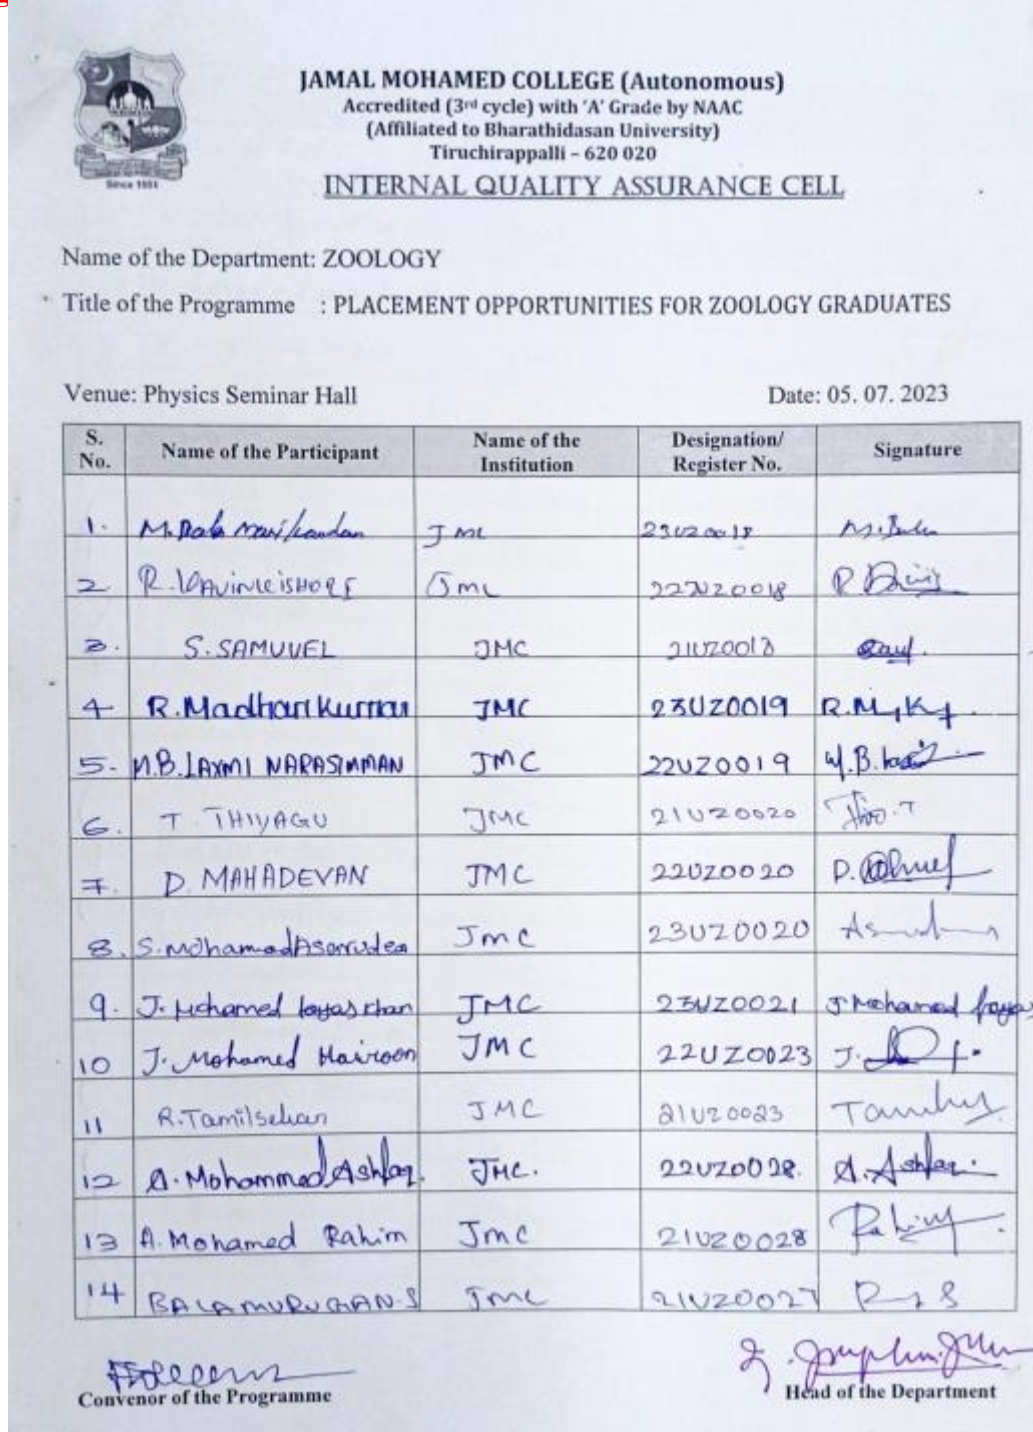 JAMAL MOHAMED COLLEGE (Autonomous)
Accredited (3rd cycle) with 'A' Grade by NAAC
(Affiliated to Bharathidasan University)
Tiruchirappalli – 620 020
Since 1951
INTERNAL QUALITY ASSURANCE CELL
Name of the Department: ZOOLOGY
Title of the Programme : PLACEMENT OPPORTUNITIES FOR ZOOLOGY GRADUATES
Venue: Physics Seminar Hall Date: 05. 07. 2023
S. No. Name of the Participant Name of the Institution Designation/ Register No. Signature
1. M. Bala Manikandan JMC 23UZ0018 M. Bala
2 R. KAVINKISHORE JMC 22UZ0018 R
3. S. SAMUVEL JMC 21UZ0018
4 R. Madhan Kumar JMC 23UZ0019 R.M.
5. M.B. LAXMI NARASIMMAN JMC 22UZ0019 M.B.
6. T. THIYAGU JMC 21UZ0020
7. D. MAHADEVAN JMC 22UZ0020 D.
8. S. Mohamed JMC 23UZ0020
9. J. Mohamed JMC 23UZ0021 J Mohamed
10 J. Mohamed Hairoon JMC 22UZ0023 J.
11 R. Tamilselvan JMC 21UZ0023
12 A. Mohammed Ashfaq. JMC. 22UZ0028. A. Ashfaq.
13 A. Mohamed Rahim JMC 21UZ0028 Rahim
14 BALAMURUGAN.S JMC 21UZ0027
Convenor of the Programme Head of the Department